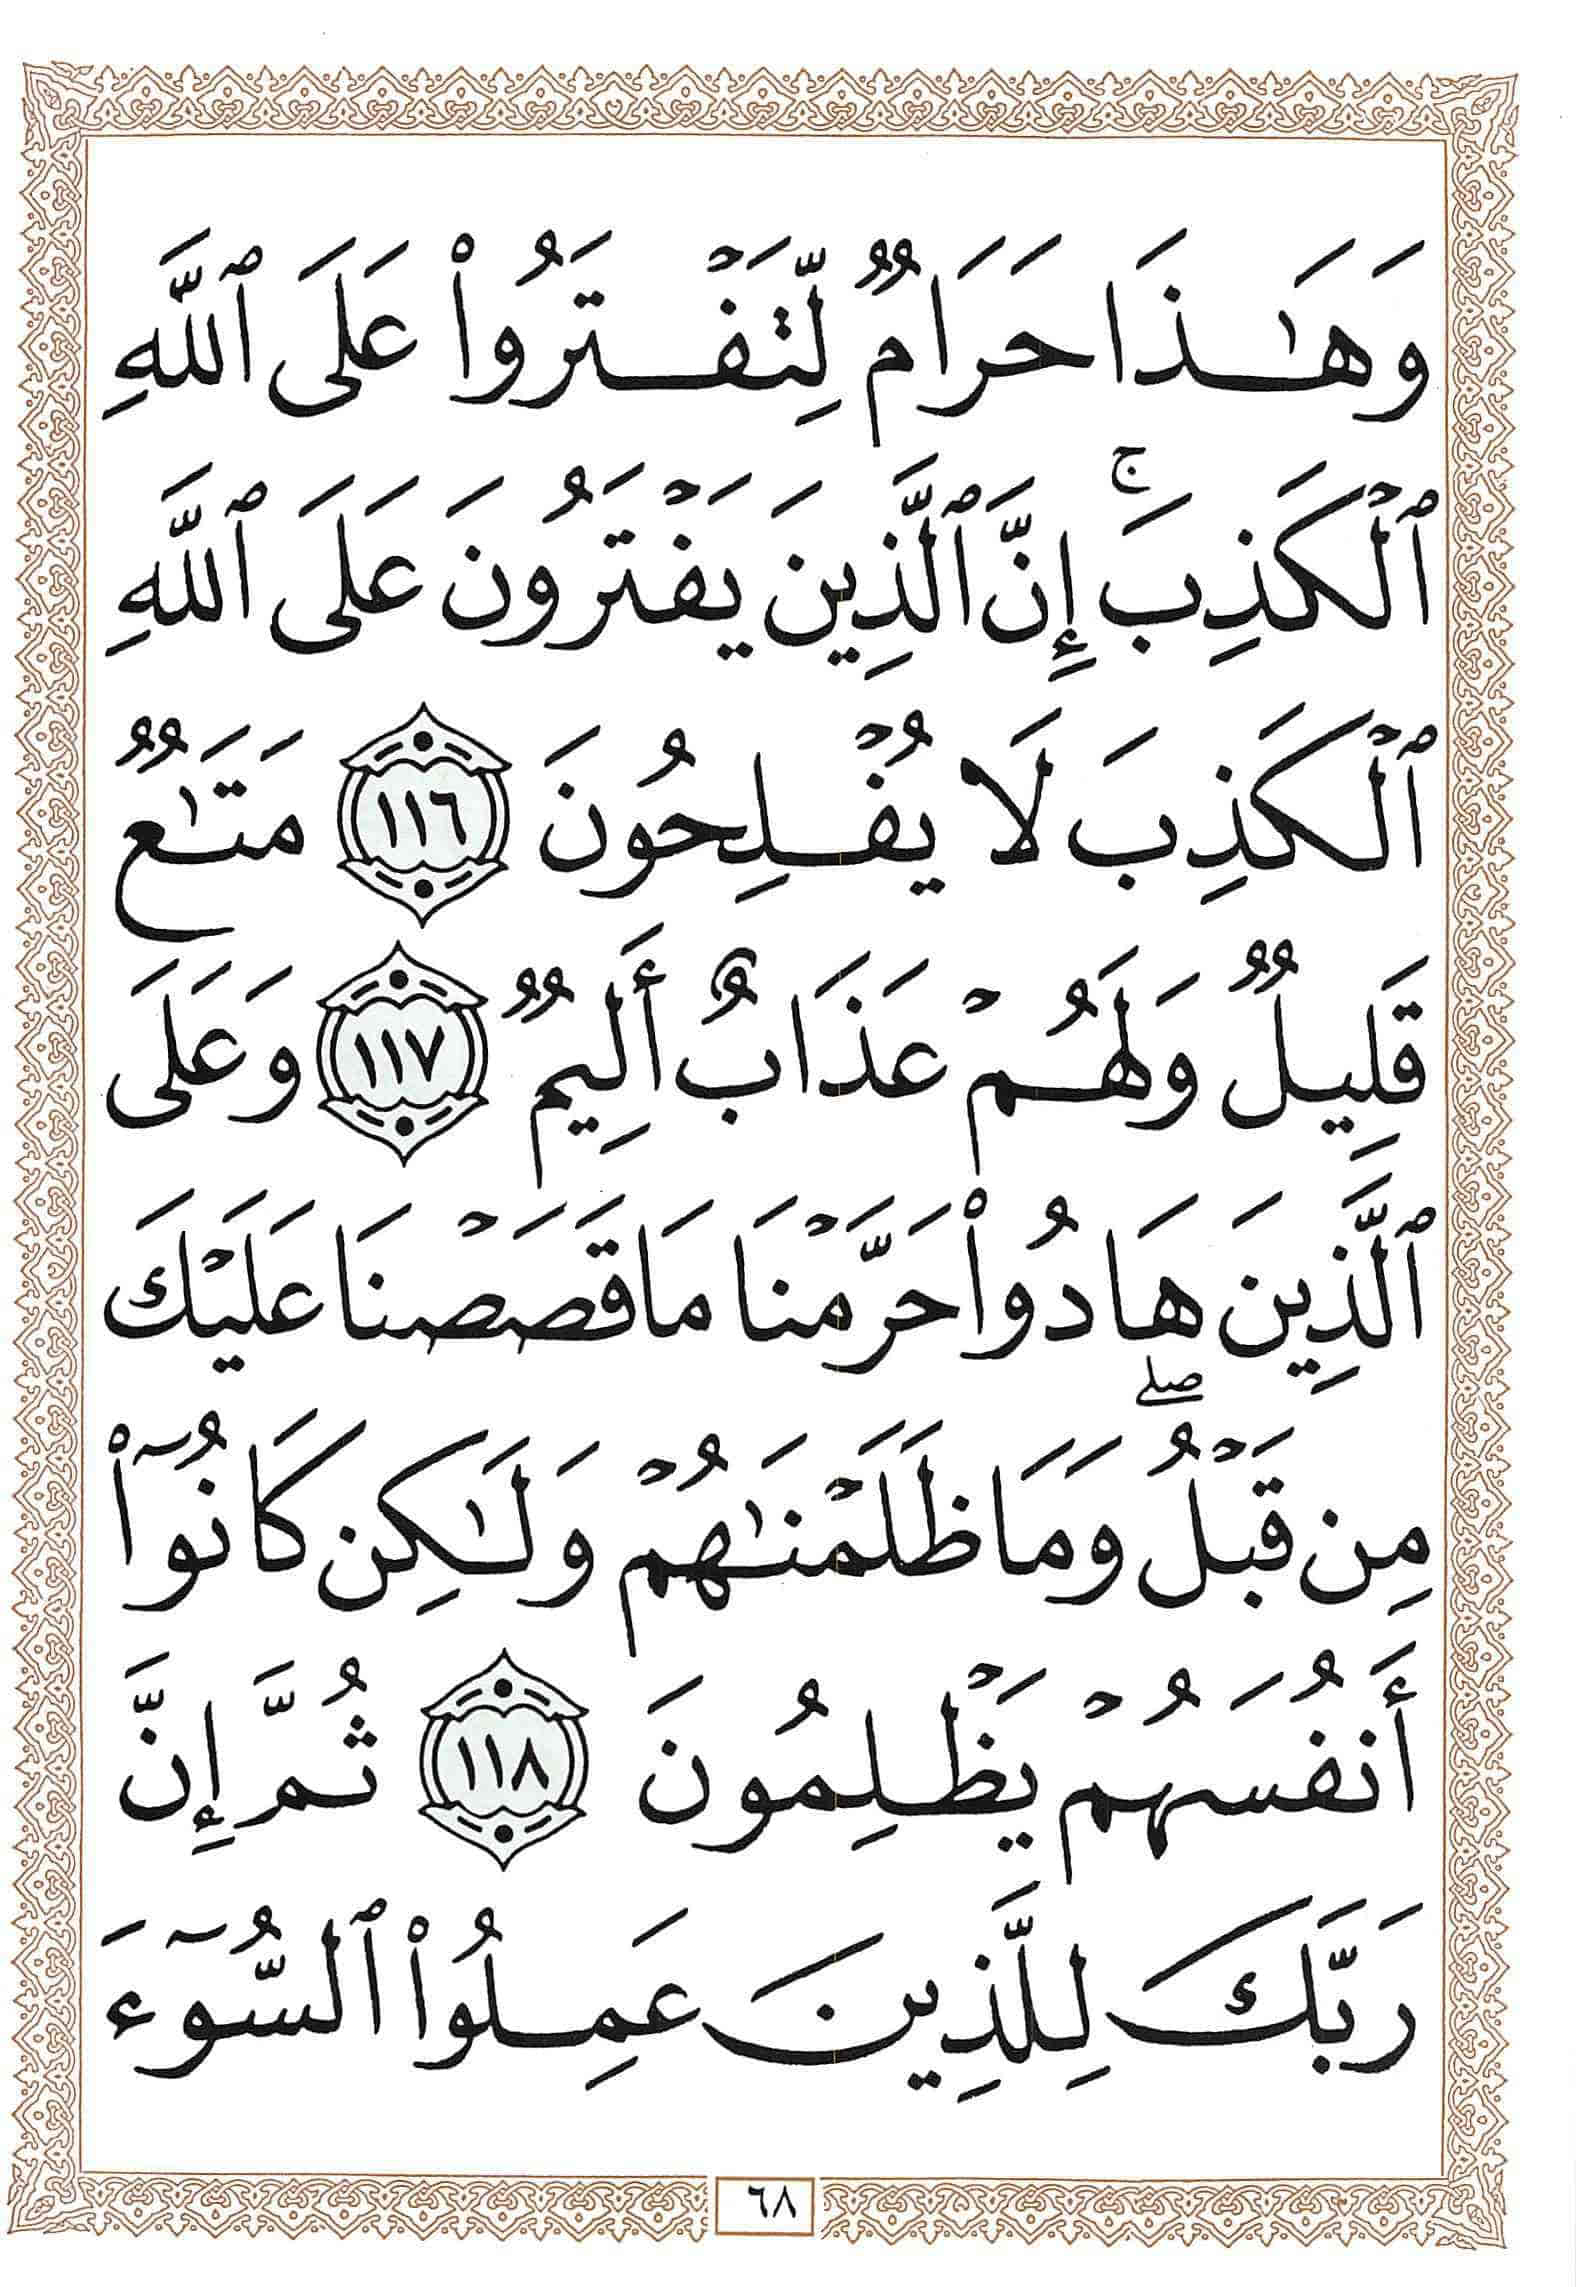 وَهَـٰذَا حَرَامٌ لِّتَفْتَرُوا۟ عَلَى ٱللَّهِ
ٱلْكَذِبَ ۚ إِنَّ ٱلَّذِينَ يَفْتَرُونَ عَلَى ٱللَّهِ
ٱلْكَذِبَ لَا يُفْلِحُونَ ١١٦ مَتَـٰعٌ
قَلِيلٌ وَلَهُمْ عَذَابٌ أَلِيمٌ ١١٧ وَعَلَى
ٱلَّذِينَ هَادُوا۟ حَرَّمْنَا مَا قَصَصْنَا عَلَيْكَ
مِن قَبْلُ ۖ وَمَا ظَلَمْنَـٰهُمْ وَلَـٰكِن كَانُوٓا۟
أَنفُسَهُمْ يَظْلِمُونَ ١١٨ ثُمَّ إِنَّ
رَبَّكَ لِلَّذِينَ عَمِلُوا۟ ٱلسُّوٓءَ
٦٨